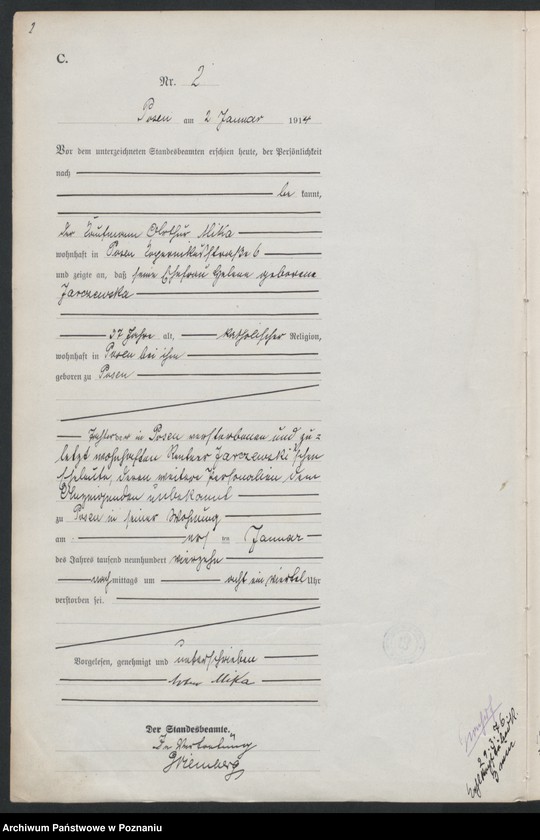 2
C.
Nr. 2
Posen am 2 Januar 1914
Vor dem unterzeichneten Standesbeamten erschien heute, der Persönlichkeit
nach
be kannt,
der Kaufmann Arthur Mika
wohnhaft in Posen Kopernikusstraße 6
und zeigte an, daß seine Ehefrau Helene geborene
Jarczewska
37 Jahre alt, katholischer Religion,
wohnhaft in Posen bei ihm
geboren zu Posen
Tochter der in Posen verstorbenen und zu-
letzt wohnhaften Rentner Jarczewski'schen
Eheleute, deren weitere Personalien dem
Anzeigenden unbekannt
zu Posen in seiner Wohnung
am ersten Januar
des Jahres tausend neunhundert vierzehn
nachmittags um acht ein viertel Uhr
verstorben sei.
Vorgelesen, genehmigt und unterschrieben
Mika
Der Standesbeamte.
In Vertretung
Archiwum Państwowe w Poznaniu